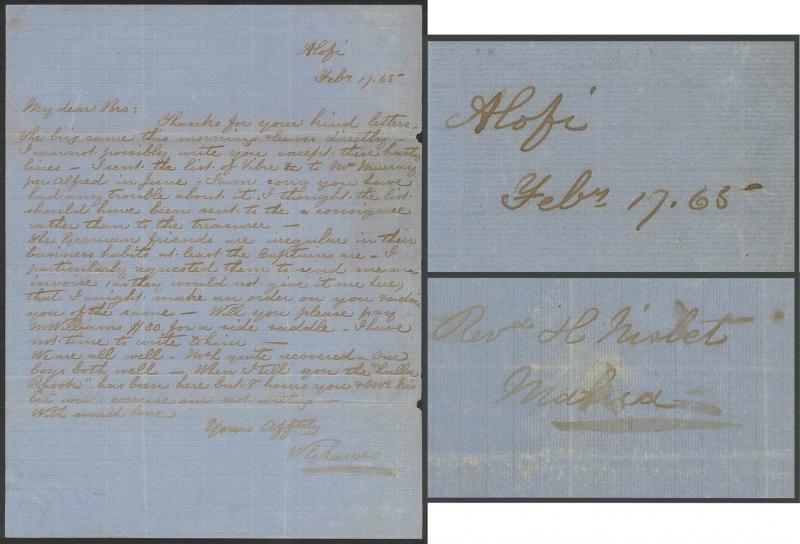 Alofi
Feby 17. 65
My dear Bro:
Thanks for your kind letters -
The brig came this morning & leaves directly -
I cannot possibly write you except these hasty
lines - I sent the list of Fibre &c to Mr Murray
per Alfred in June - I am sorry you have
had any trouble about it. I thought the list
should have been sent to the consignee
rather than to the treasurer -
The German friends are irregular in their
business habits at least the Captains are - I
particularly requested them to send me an
invoice, (as they would not give it me here,
that I might make an order on you & advise
you of the same - Will you please pay
McWilliams $30 for a side saddle - I have
not time to write to him -
We are all well - quite recovered - Our
boys both well - When I tell you the "Lalla
Rhook" has been here but 8 hours you & Mrs Nis
bet will excuse our not writing -
With much love
Yours Afftly
W G Lawes
Alofi
Feby 17. 65
Revd H Nisbet
Malua